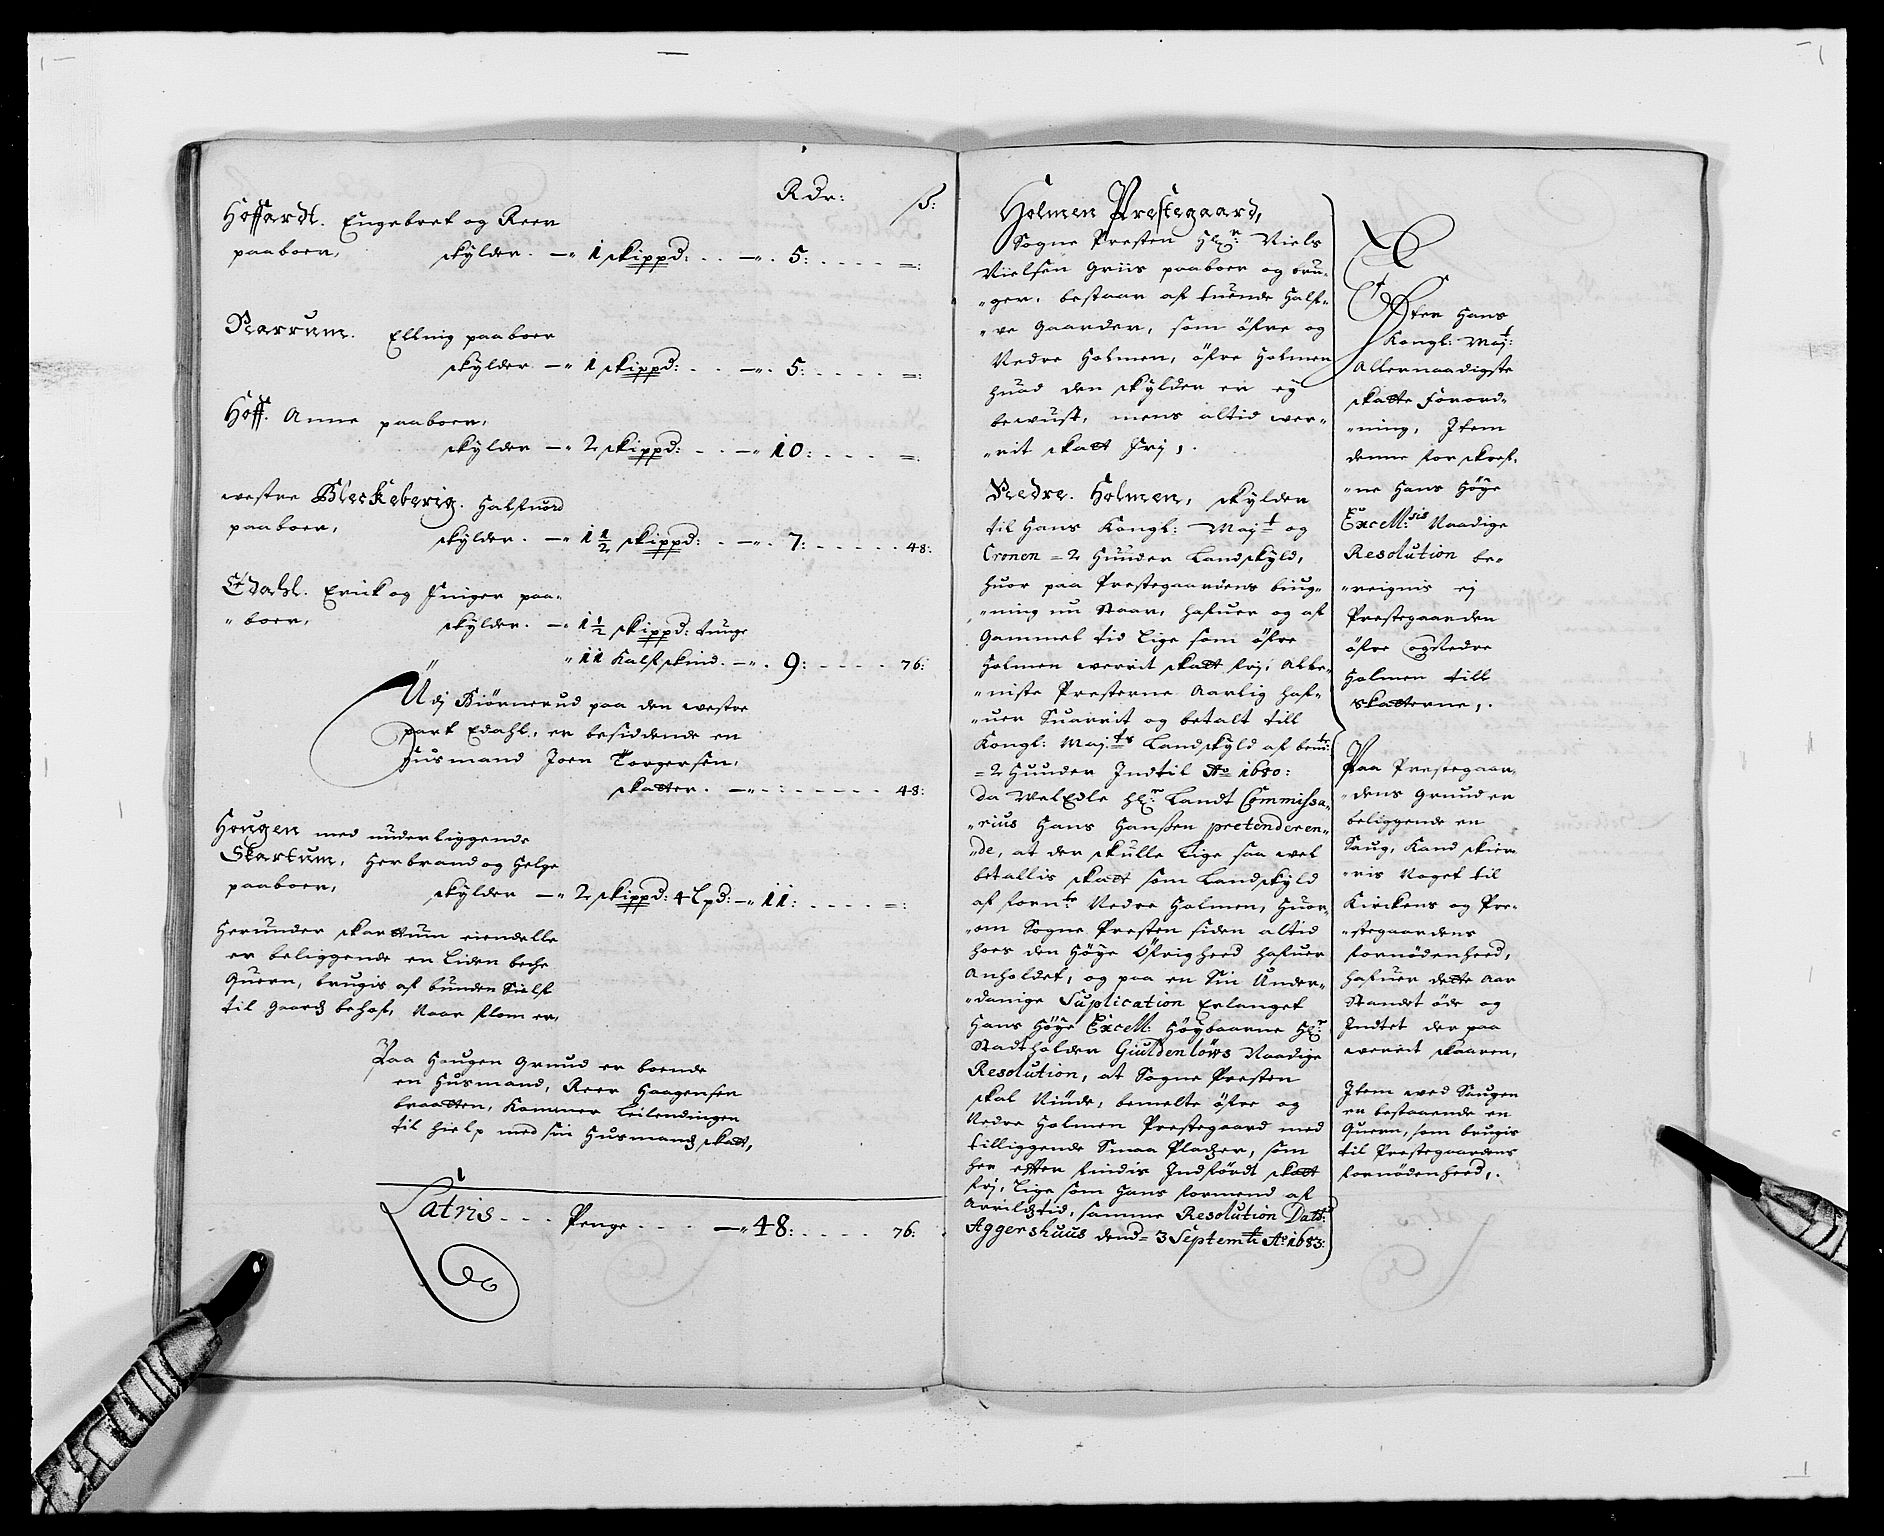 Rdr: ß:
Hoffardt. Engebret og Reer
paaboer, skylder. — 1 skippd: . . — . 5: . . . . . =:
Narrum. Elling paaboer
skylder — 1 skippd: . . — . 5: . . . . . =:
Hoff. Anne paaboer,
skylder — 2 skippd: . . — 10: . . . . =:
westre Bleskeberig. Halfuord
paaboer, skylder. — 1 1/2 skippd: . — . 7: . . . . . . 48:
Edahl. Erick og Inger paa-
"boer, skylder. — 1 1/2 skippd: tunge
" 11 Kalfskind. — . 9: . . . . . 76:
Udj Biørnerud paa den westre
part Edahl, er besiddende en
Husmand Joen Torgersen,
skatter. — . . . . . . . 48:
Hougen med underliggende
Skartum, Herbrand og Helge
paaboer, skylder — 2 skippd: 4 Lpd: — 11: . . . . . =:
Herunder skartum eiendelle
er beliggende en Liden beche
Quern, brugis af bunden Sielf
til Gaards behof, Naar flom er,
Paa Hougen Grund er boende
en Husmand, Reer Haagensen
braatten, Kommer Leilendingen
til hielp med sin Husmands skatt,
Latris . . . Penge . . . . — 48: . . . . . 76:
Holmen Prestegaard,
Sogne Presten Hr: Niels
Nielsen Griis paaboer og bru-
"ger, bestaar af tuende Half-
"ve Gaarder, som öfre og
Nedre Holmen, öfre Holmen
huad den skylder er ey
bewust, mens altid wer-
"rit skatt Frj,.
Nedre. Holmen, skylder
til Hans Kongl: Mayt og
Cronen = 2 Huuder Landskyld,
huor paa Prestegaardens biug-
"ning nu Staar, hafuer og af
Gammel tid Lige som öfre
Holmen werrit skatt frj, Alle-
"niste Presterne Aarlig haf-
"uer Suarrit og betalt till
Kongl: Maj:ts Landskyld af bemte:
= 2 Huuder Indtil Ao 1680:
da WelEdle Hr: Landt Commissa-
"rius Hans Hanßen pretenderen-
"de, at der skulle Lige saa wel
betallis skatt som Landskyld
af fornte Nedre Holmen, Huor-
"om Sogne Presten siden altid
hoes den Höye Öfrigheed hafuer
Anholdet, og paa en Sin Under-
"danige Suplication Erlanget
Hans Höye Excell: Höybaarne Hr:
Stadtholder Giuldenlöws Naadige
Resolution, at Sogne Presten
skal Niude, bemelte öfre og
Nedre Holmen Prestegaard med
tilliggende Smaa Pladzer, som
her effter findis Indfördt skatt
frj, Lige som Hans formend af
Arrildstid, samme Resolution Datt:
Aggershuus dend = 3 Septembr Ao 1683:
Effter Hans
Kongl: Mayt:
Allernaadigste
skatte Forord-
"ning, Item
denne for skref-
"ne Hans Höye
Excell:sis Naadige
Resolution be-
"reignis ej
Prestegaarden
öfre og Nedre
Holmen till
skatterne,.
Paa Prestegaar-
"dens Grund er
beliggende en
Saug, Kand skier-
"ris Noget til
Kirckens og Pre-
"stegaardens
fornödenheed,
hafuer dette Aar
Standet öde og
Indtet der paa
werrit skaaren,
Item wed Saugen
er bestaaende en
Quern, som brugis
til Prestegaardens
fornödenheed,.